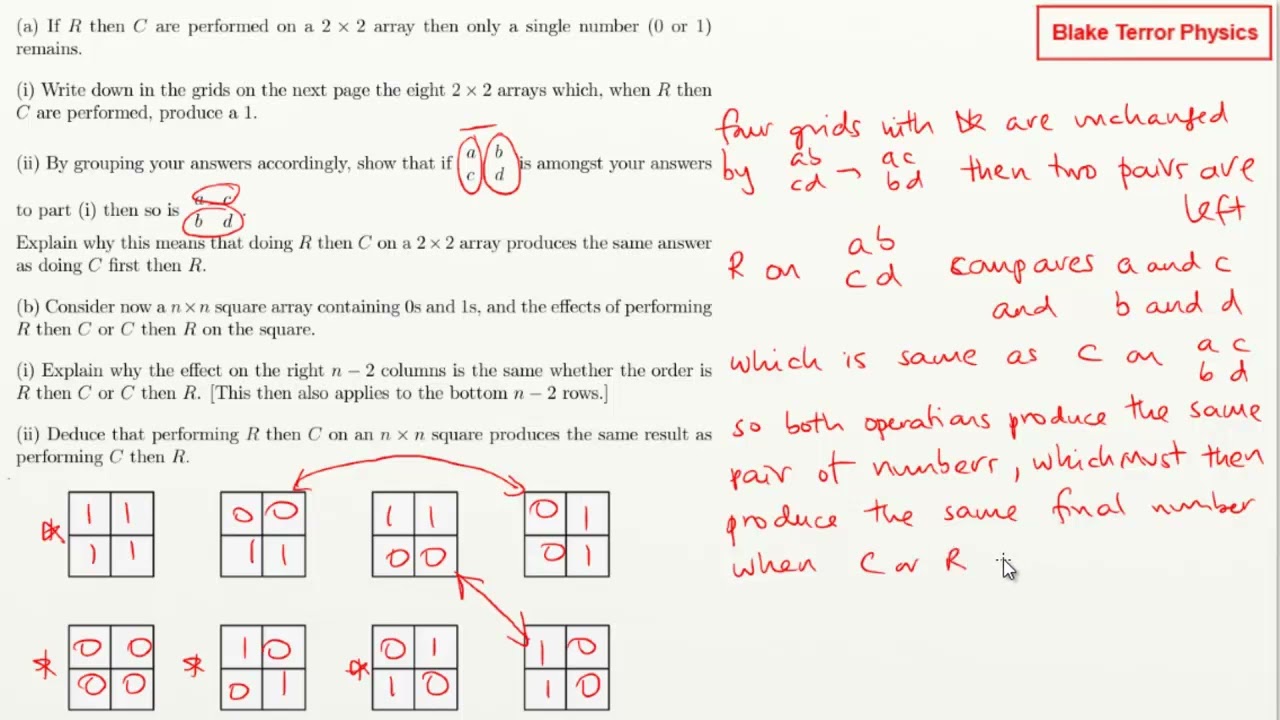 (a) If R then C are performed on a 2 × 2 array then only a single number (0 or 1)
remains.
(i) Write down in the grids on the next page the eight 2 × 2 arrays which, when R then
C are performed, produce a 1.
(ii) By grouping your answers accordingly, show that if a b is amongst your answers
c d
to part (i) then so is a c
b d .
Explain why this means that doing R then C on a 2 × 2 array produces the same answer
as doing C first then R.
(b) Consider now a n × n square array containing 0s and 1s, and the effects of performing
R then C or C then R on the square.
(i) Explain why the effect on the right n − 2 columns is the same whether the order is
R then C or C then R. [This then also applies to the bottom n − 2 rows.]
(ii) Deduce that performing R then C on an n × n square produces the same result as
performing C then R.
* 1 1
1 1
0 0
1 1
1 1
0 0
0 1
0 1
* 0 0
0 0
* 1 0
0 1
* 0 1
1 0
1 0
1 0
Blake Terror Physics
four grids with * are unchanged
by ab → ac then two pairs are
cd bd
left
R on ab compares a and c
cd
and b and d
which is same as C on a c
b d
so both operations produce the same
pair of numbers, which must then
produce the same final number
when C or R